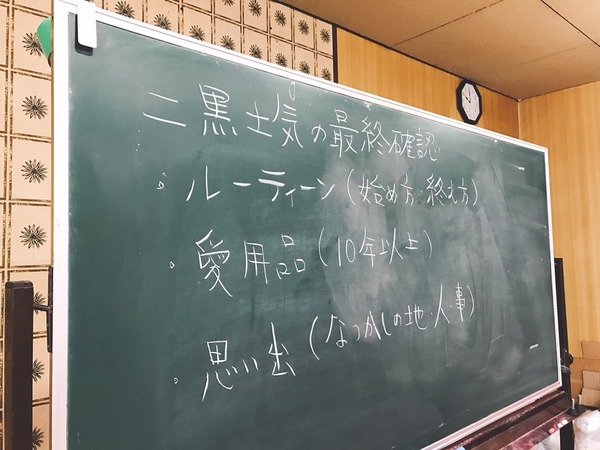 二黒土気の最終確認
。ルーティーン(始め方・終え方)
。愛用品(10年以上)
。思い出(なつかしの地・人・事)